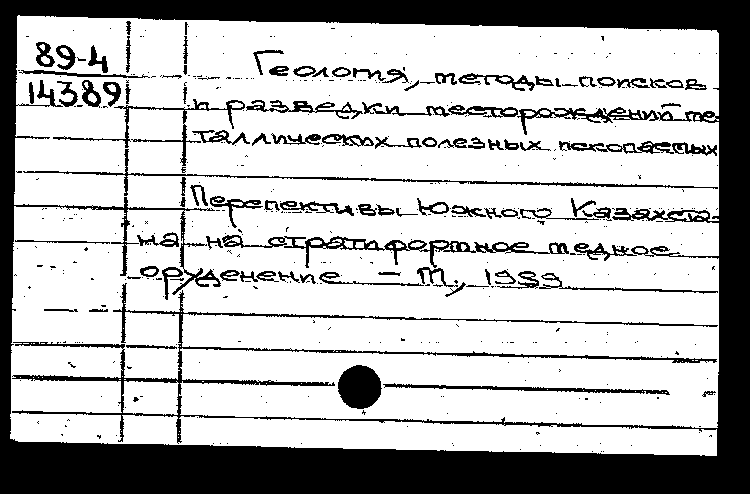 89-4
14389
Геология, методы поисков
и разведки месторождений ме-
таллических полезных ископаемых
Перспективы Южного Казахста-
на на стратиформное медное
оруденение – М., 1989